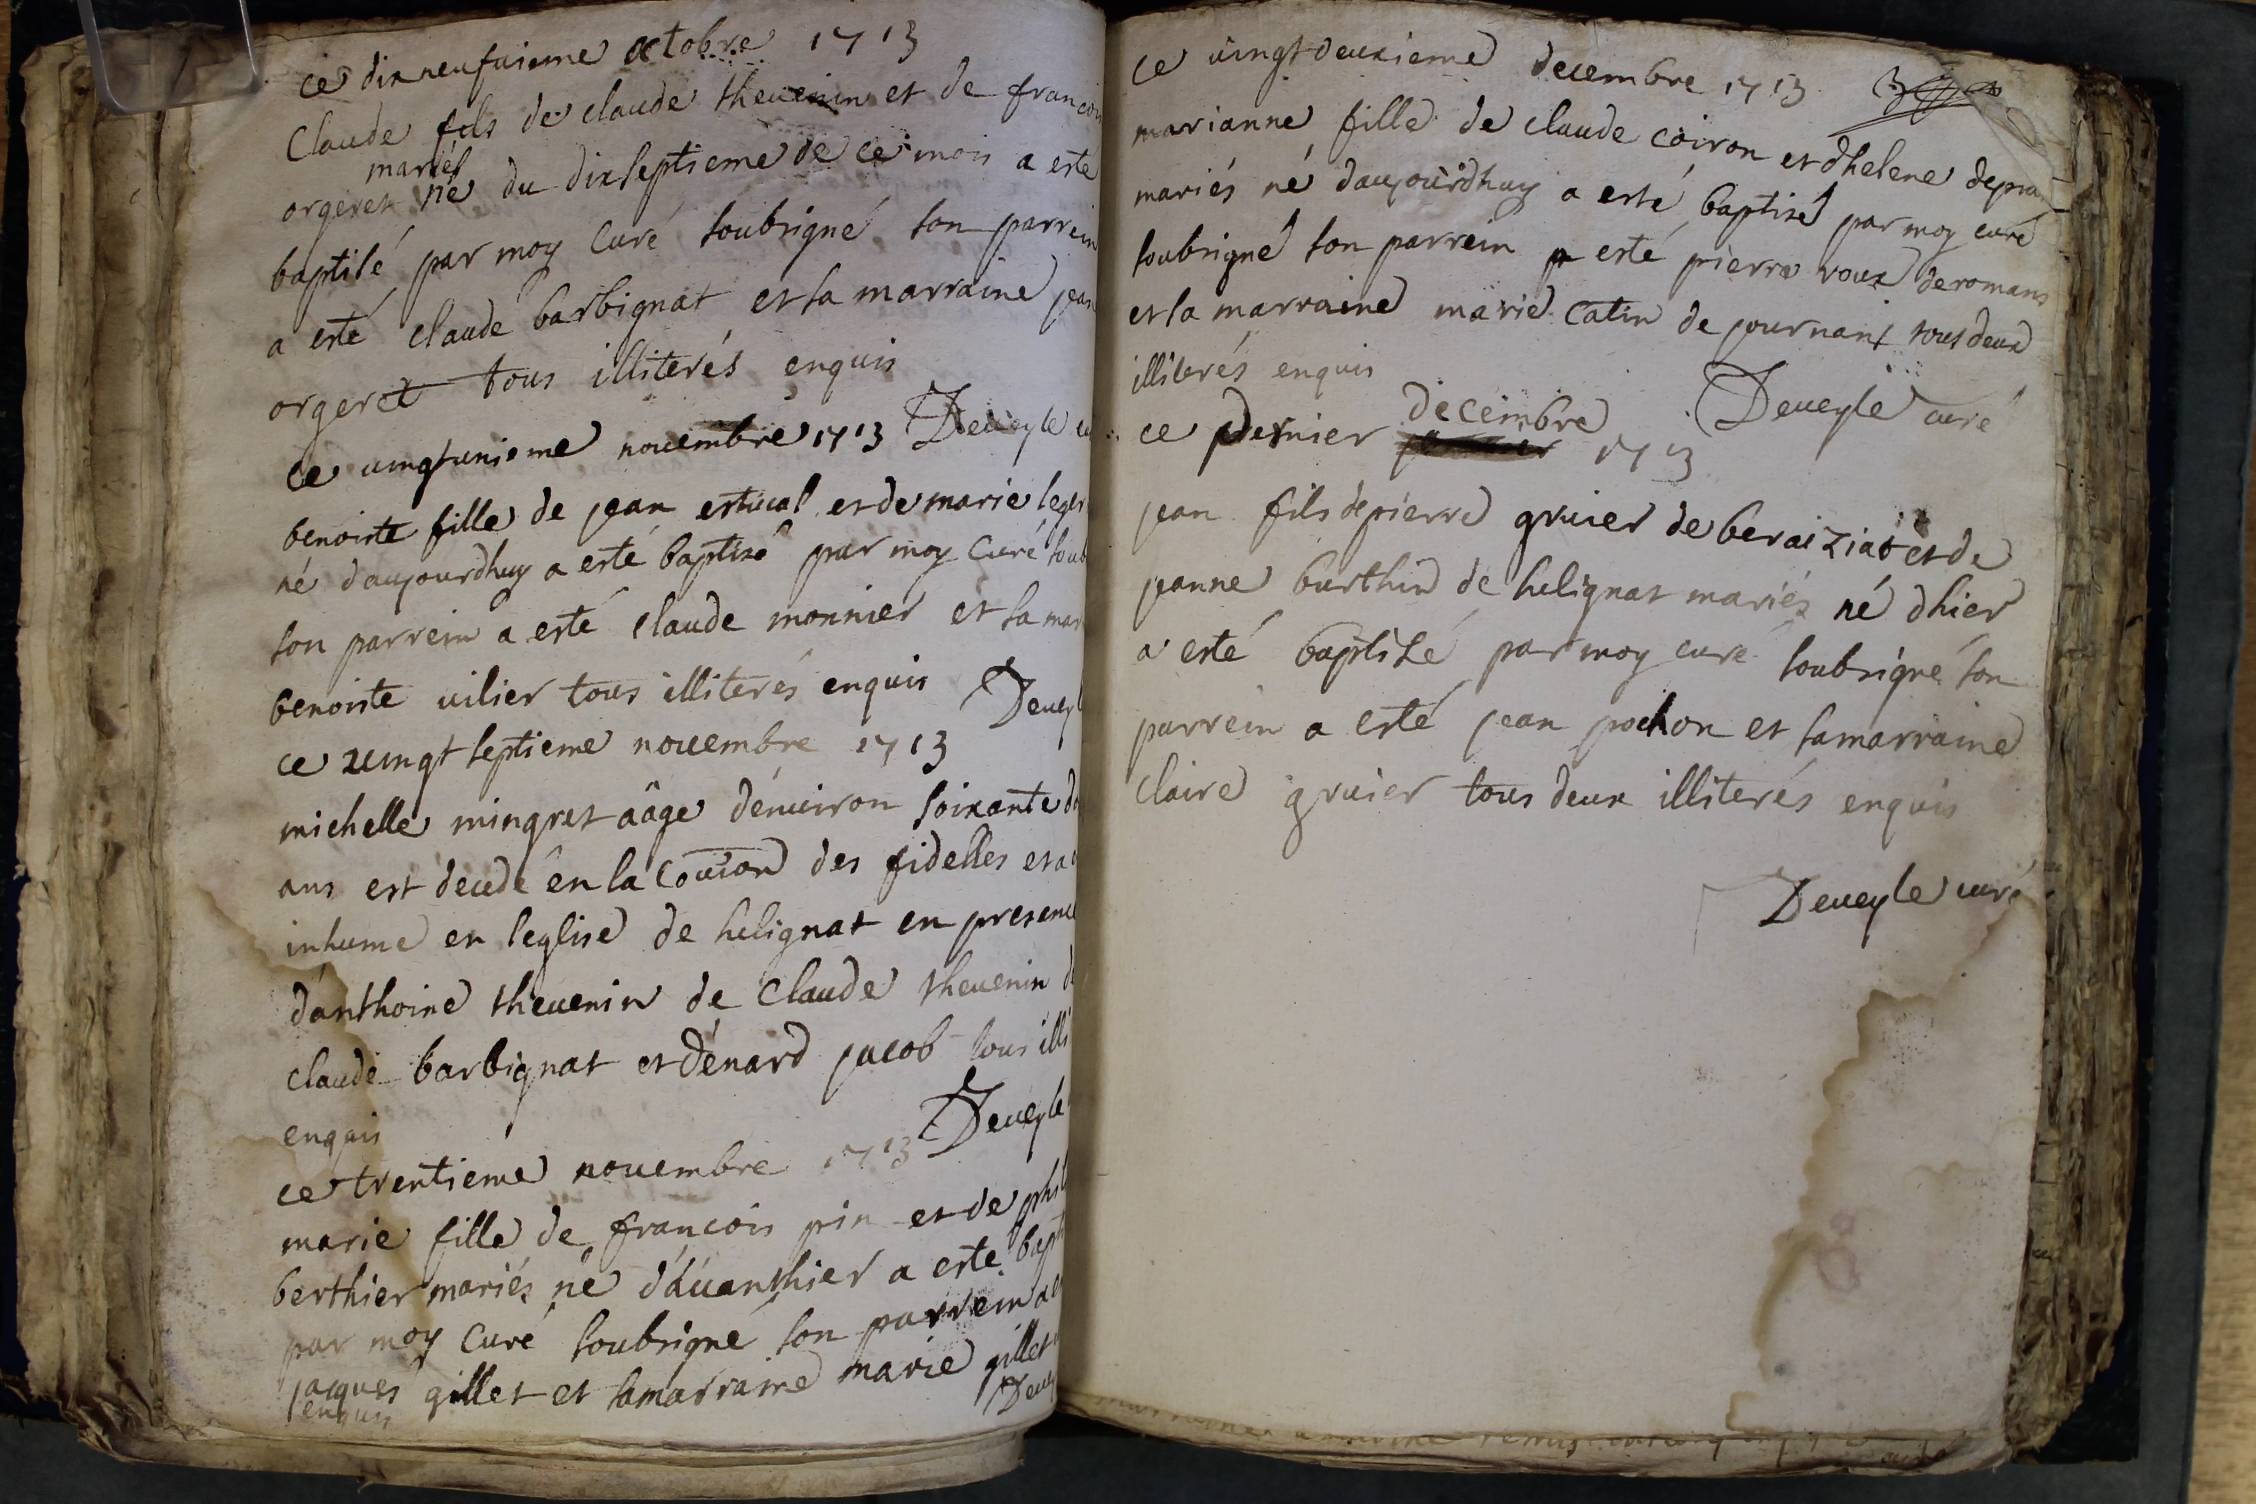 ce dixneufuieme octobre 1713
Claude fils de claude theuenin et de francoi
mariés
orgeret né du dixseptieme de ce mois a esté
baptisé par moy Curé soubsigné son parrein
a esté claude barbignat et sa marraine jean
orgeret tous illiterés enquis
Deueyle cu
ce uingtunieme nouembre 1713
benoiste fille de jean estiual et de marie leger
né daujourdhuy a esté baptisé par moy Curé soub
son parrein a esté claude monnier et sa mar
benoiste uilier tous illiterés enquis
Deueyl
ce uingt septieme nouembre 1713
michelle mingret aâge dénuiron soixante d
ans est decedé en la Com̄ion des fidelles et a
inhumé en leglise de helignat en presence
dánthoine theuenin de Claude theuenin d
claude barbignat et dénard jacob tous illi
enquis
Deueyle
ce trentieme nouembre 1713
marie fille de francois pin et de phil
berthier mariés né dáuanthier a esté bapti
par moy Curé soubsigné son parrein a e
jacques gillet et samarraine marie gillet
enquis
Deuey
ce uingtdeuxieme decembre 1713
marianne fille de claude coiron et dhelene depra
mariés né daujourdhuy a esté baptisé par moy curé
soubsigné son parrein a esté pierre roux deromans
et sa marraine marie Catin de journans tous deux
illiterés enquis
Deueyle curé
ce dernier decembre 1713
jean fils de pierre gruier de beraiziat et de
jeanne burthin de helignat mariés né dhier
a esté baptisé par moy curé soubsigné son
parrein a esté jean pochon et samarraine
claire gruier tous deux illiterés enquis
Deueyle curé